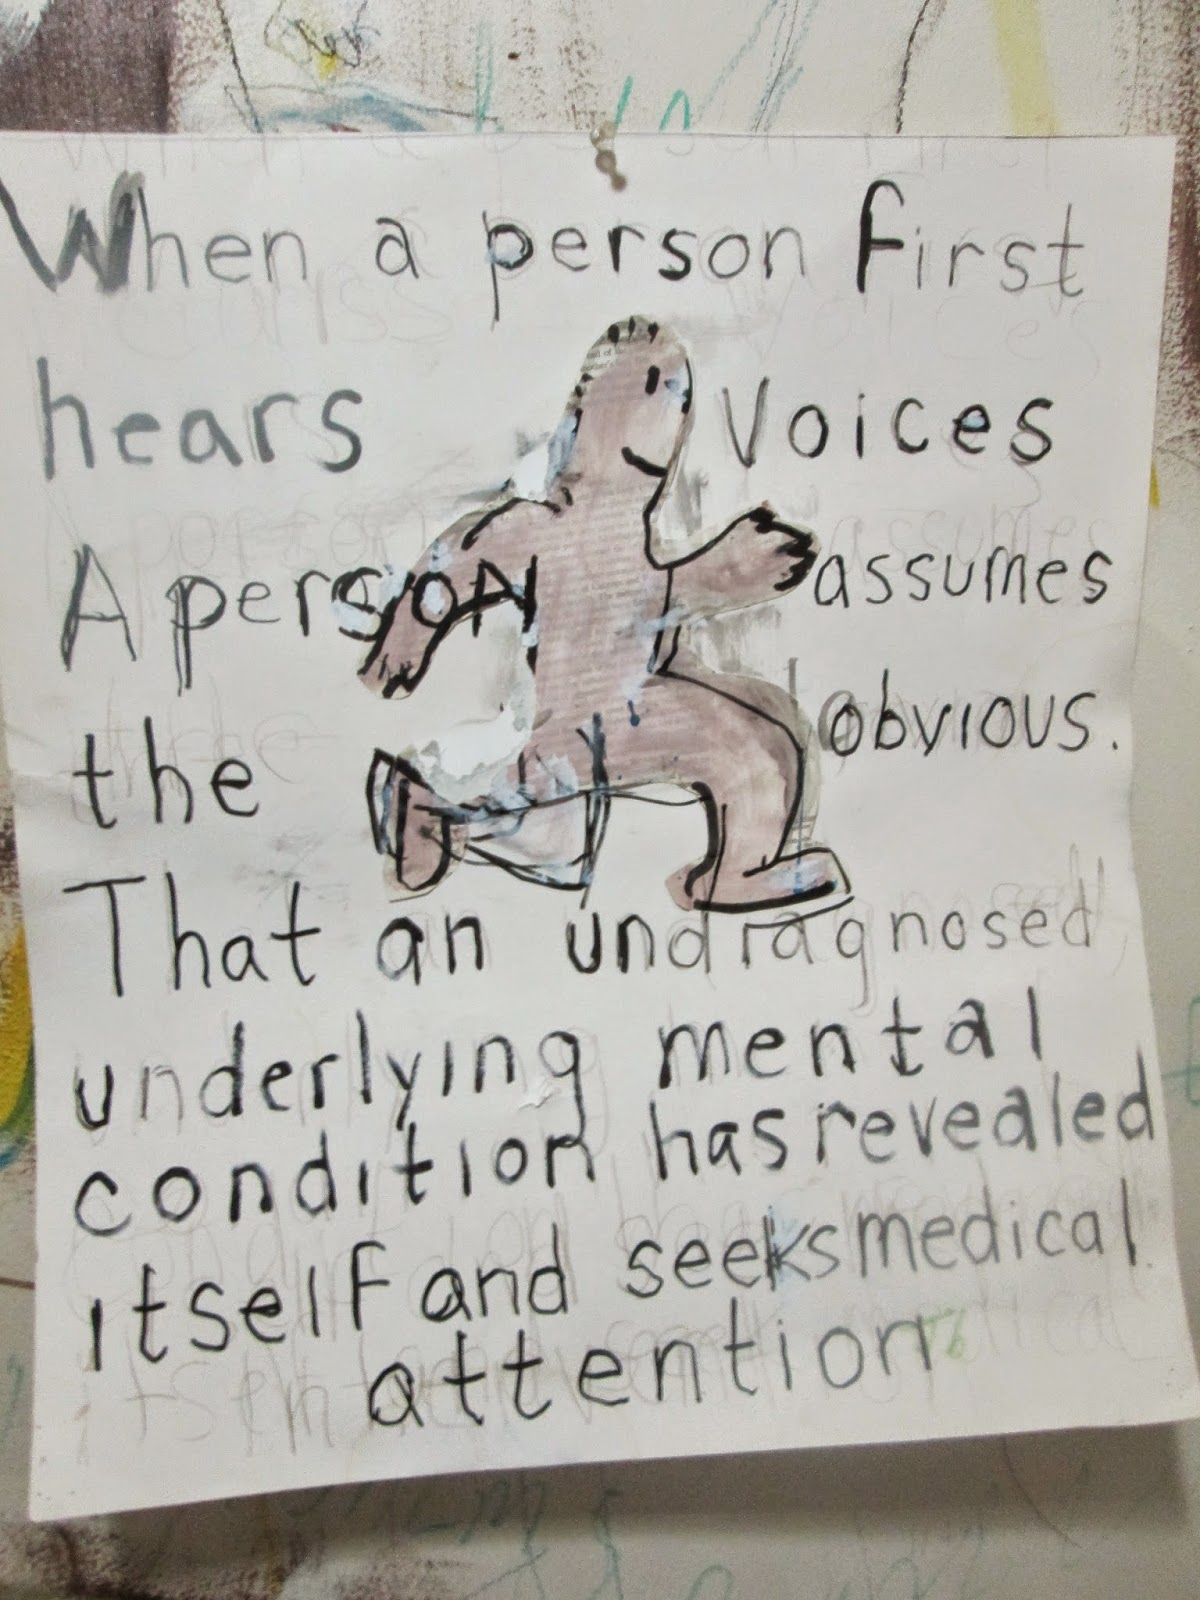 When a person First
hears Voices
A person assumes
the obvious.
That an undiagnosed
underlying mental
condition has revealed
itselF and seeks medical
attention